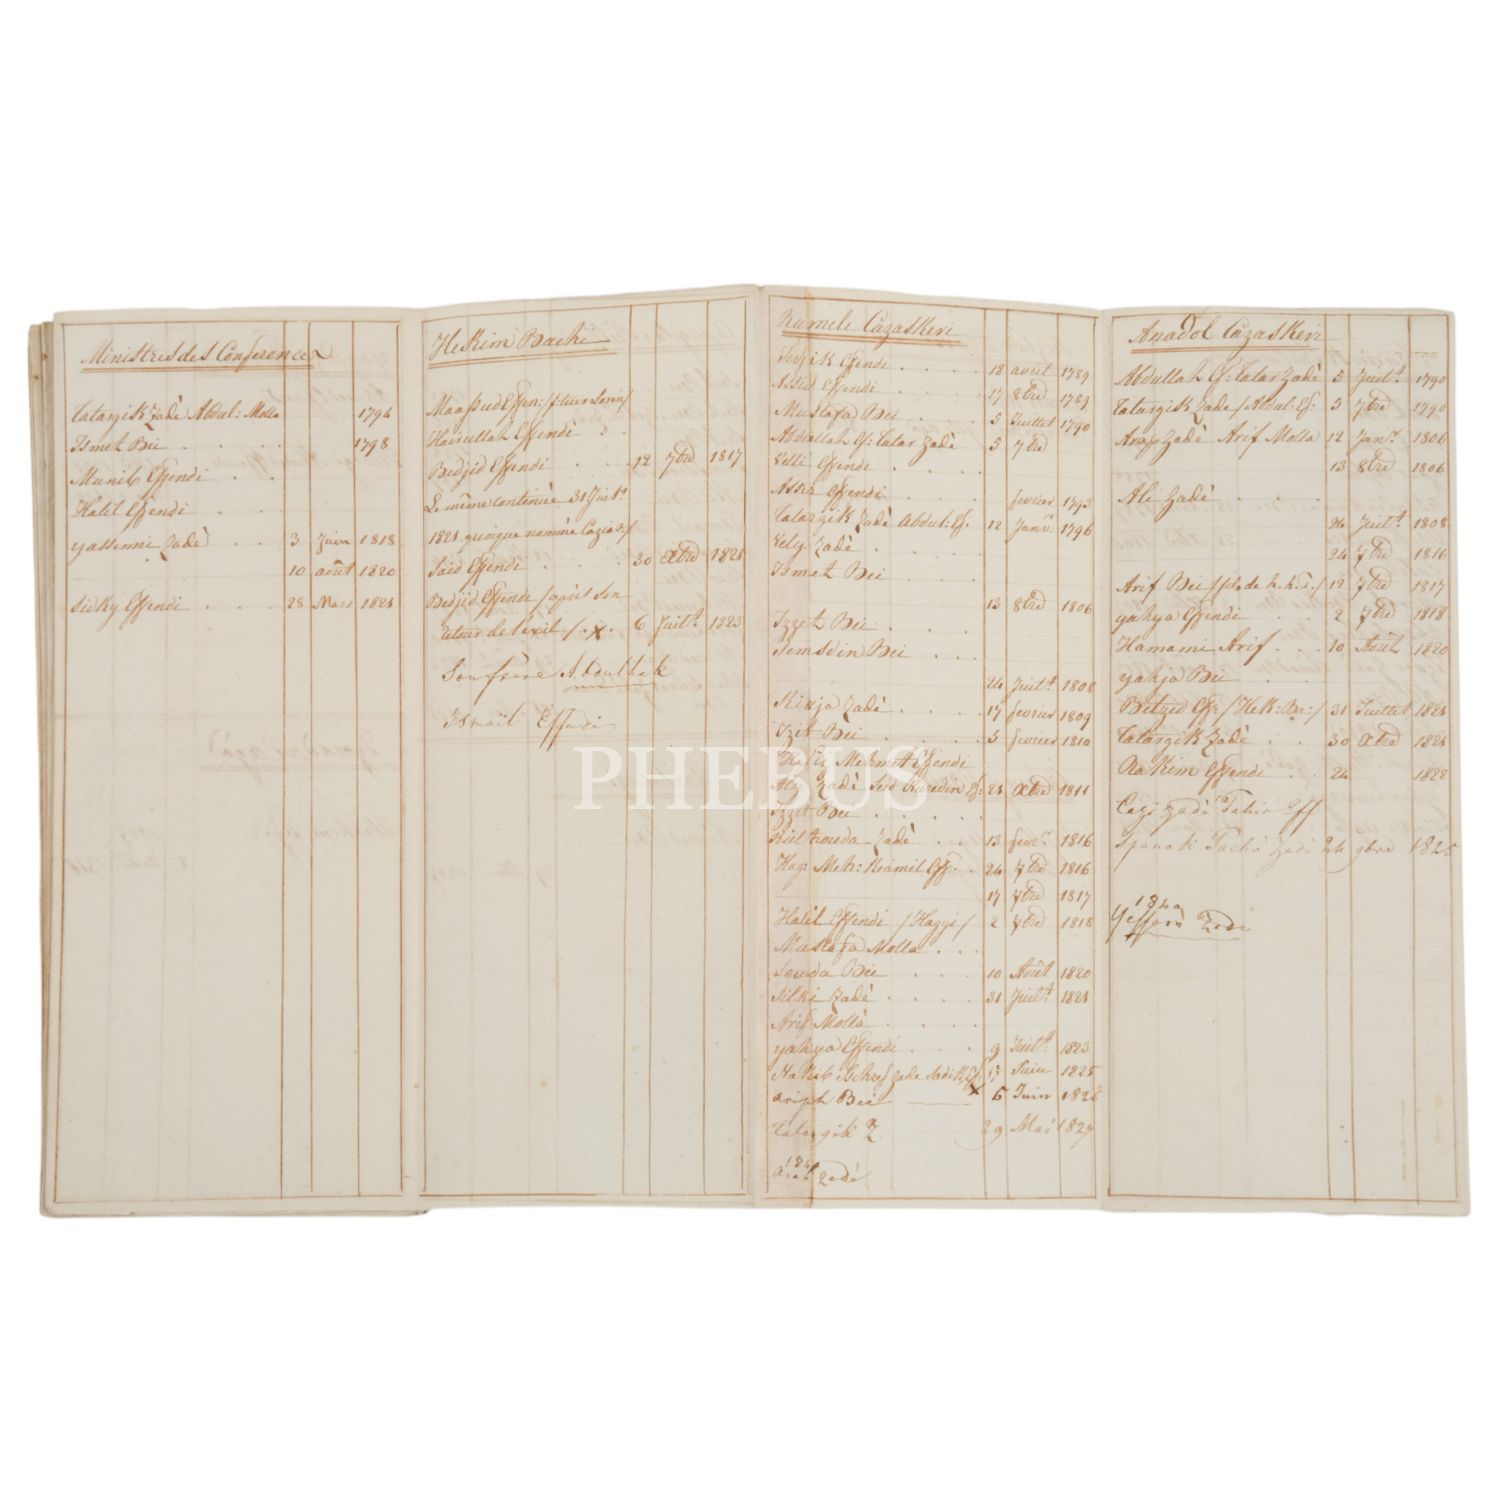 Ministres des Conferences
Tatargik Zadè Abdul: Molla 1794
Ismet Bei . . . . 1798
Munib Effendi . .
Halil Effendi . .
yassinni Zadè . . 3 Juin 1818
10 août 1820
Sidky Effendi . . . 28 Mars 1821
Hekim Bachi
Effen:
Hairullah Effendi . .
Bedjid Effendi . . . 12 7bre 1817
Le même continué 31 Juilt
1821 quoique nommé
Said Effendi . . . . 30 Xbre 1821
Bedjid Effendi / après son
retour de l'exil / . x . 6 Juilt. 1823
Son frère Abdulhak
Ismaïl Effendi
Rumeli Cazaskeri
Tevfik Effendi . . . . 18 avril 1789
Assid Effendi . 17 8bre 1789
Mustafa Bei . . . 5 Juillet 1790
Abdullah Ef: Tatar Zadè 5 7bre
Velli Effendi . . . .
Assir Effendi . . . fevrier 1793
Tatargik Zadè Abdul: Ef. 12 Janvr. 1796
Vely Zadè . . . .
Ismet Bei . . .
13 8bre 1806
Izzet Bei . . . .
Semsdin Bei . . .
24 Juilt. 1808
Zadè . . . 17 fevrier 1809
Izet Bei . . . . 5 fevrier 1810
Hafiz Mehmet Effendi
Aly Zadè Seid Ef: 21 Xbre 1811
Izzet Bei . . . . .
Zadè . . 13 fevr. 1816
Hag: Meh: Kiamil Eff. . 24 7bre 1816
17 7bre 1817
Halil Effendi / Hagyi / 2 7bre 1818
Mustafa Molla . . .
Bei . . . 10 Août 1820
Silki Zadè . . . . 31 Juilt. 1821
Arif Molla . . . .
yahya Effendi . . . 9 Juilt. 1823
Nakib zade Sadik Ef 17 Juin 1825
Ariph Bei x 5 Juin 1826
Tatargik Z. 29 Mai 1827
Arab zadè
Anadol Cazaskeri
Abdullah Ef: Tatar Zadè 5 Juilt. 1790
Tatargik Zade / Abdul: Ef: 5 7bre 1790
Arap Zadè Arif Molla 12 Janr. 1806
13 8bre 1806
Ali Zadè . . . .
24 Juilt. 1808
24 7bre 1816
Arif Bei / fils de h. k. i. / 17 7bre 1817
yahya Effendi . . 2 7bre 1818
Hamami Arif . . . 10 Août 1820
yahja Bei . . .
Eff: / Hek: Ba: / 31 Juillet 1821
Tatargik Zadè . . 30 Xbre 1821
Rakim Effendi . . 24 1822
Cazizadè Tahir Eff
Ispanak Pacha Zadè 24 9bre 1825
PHEBUS